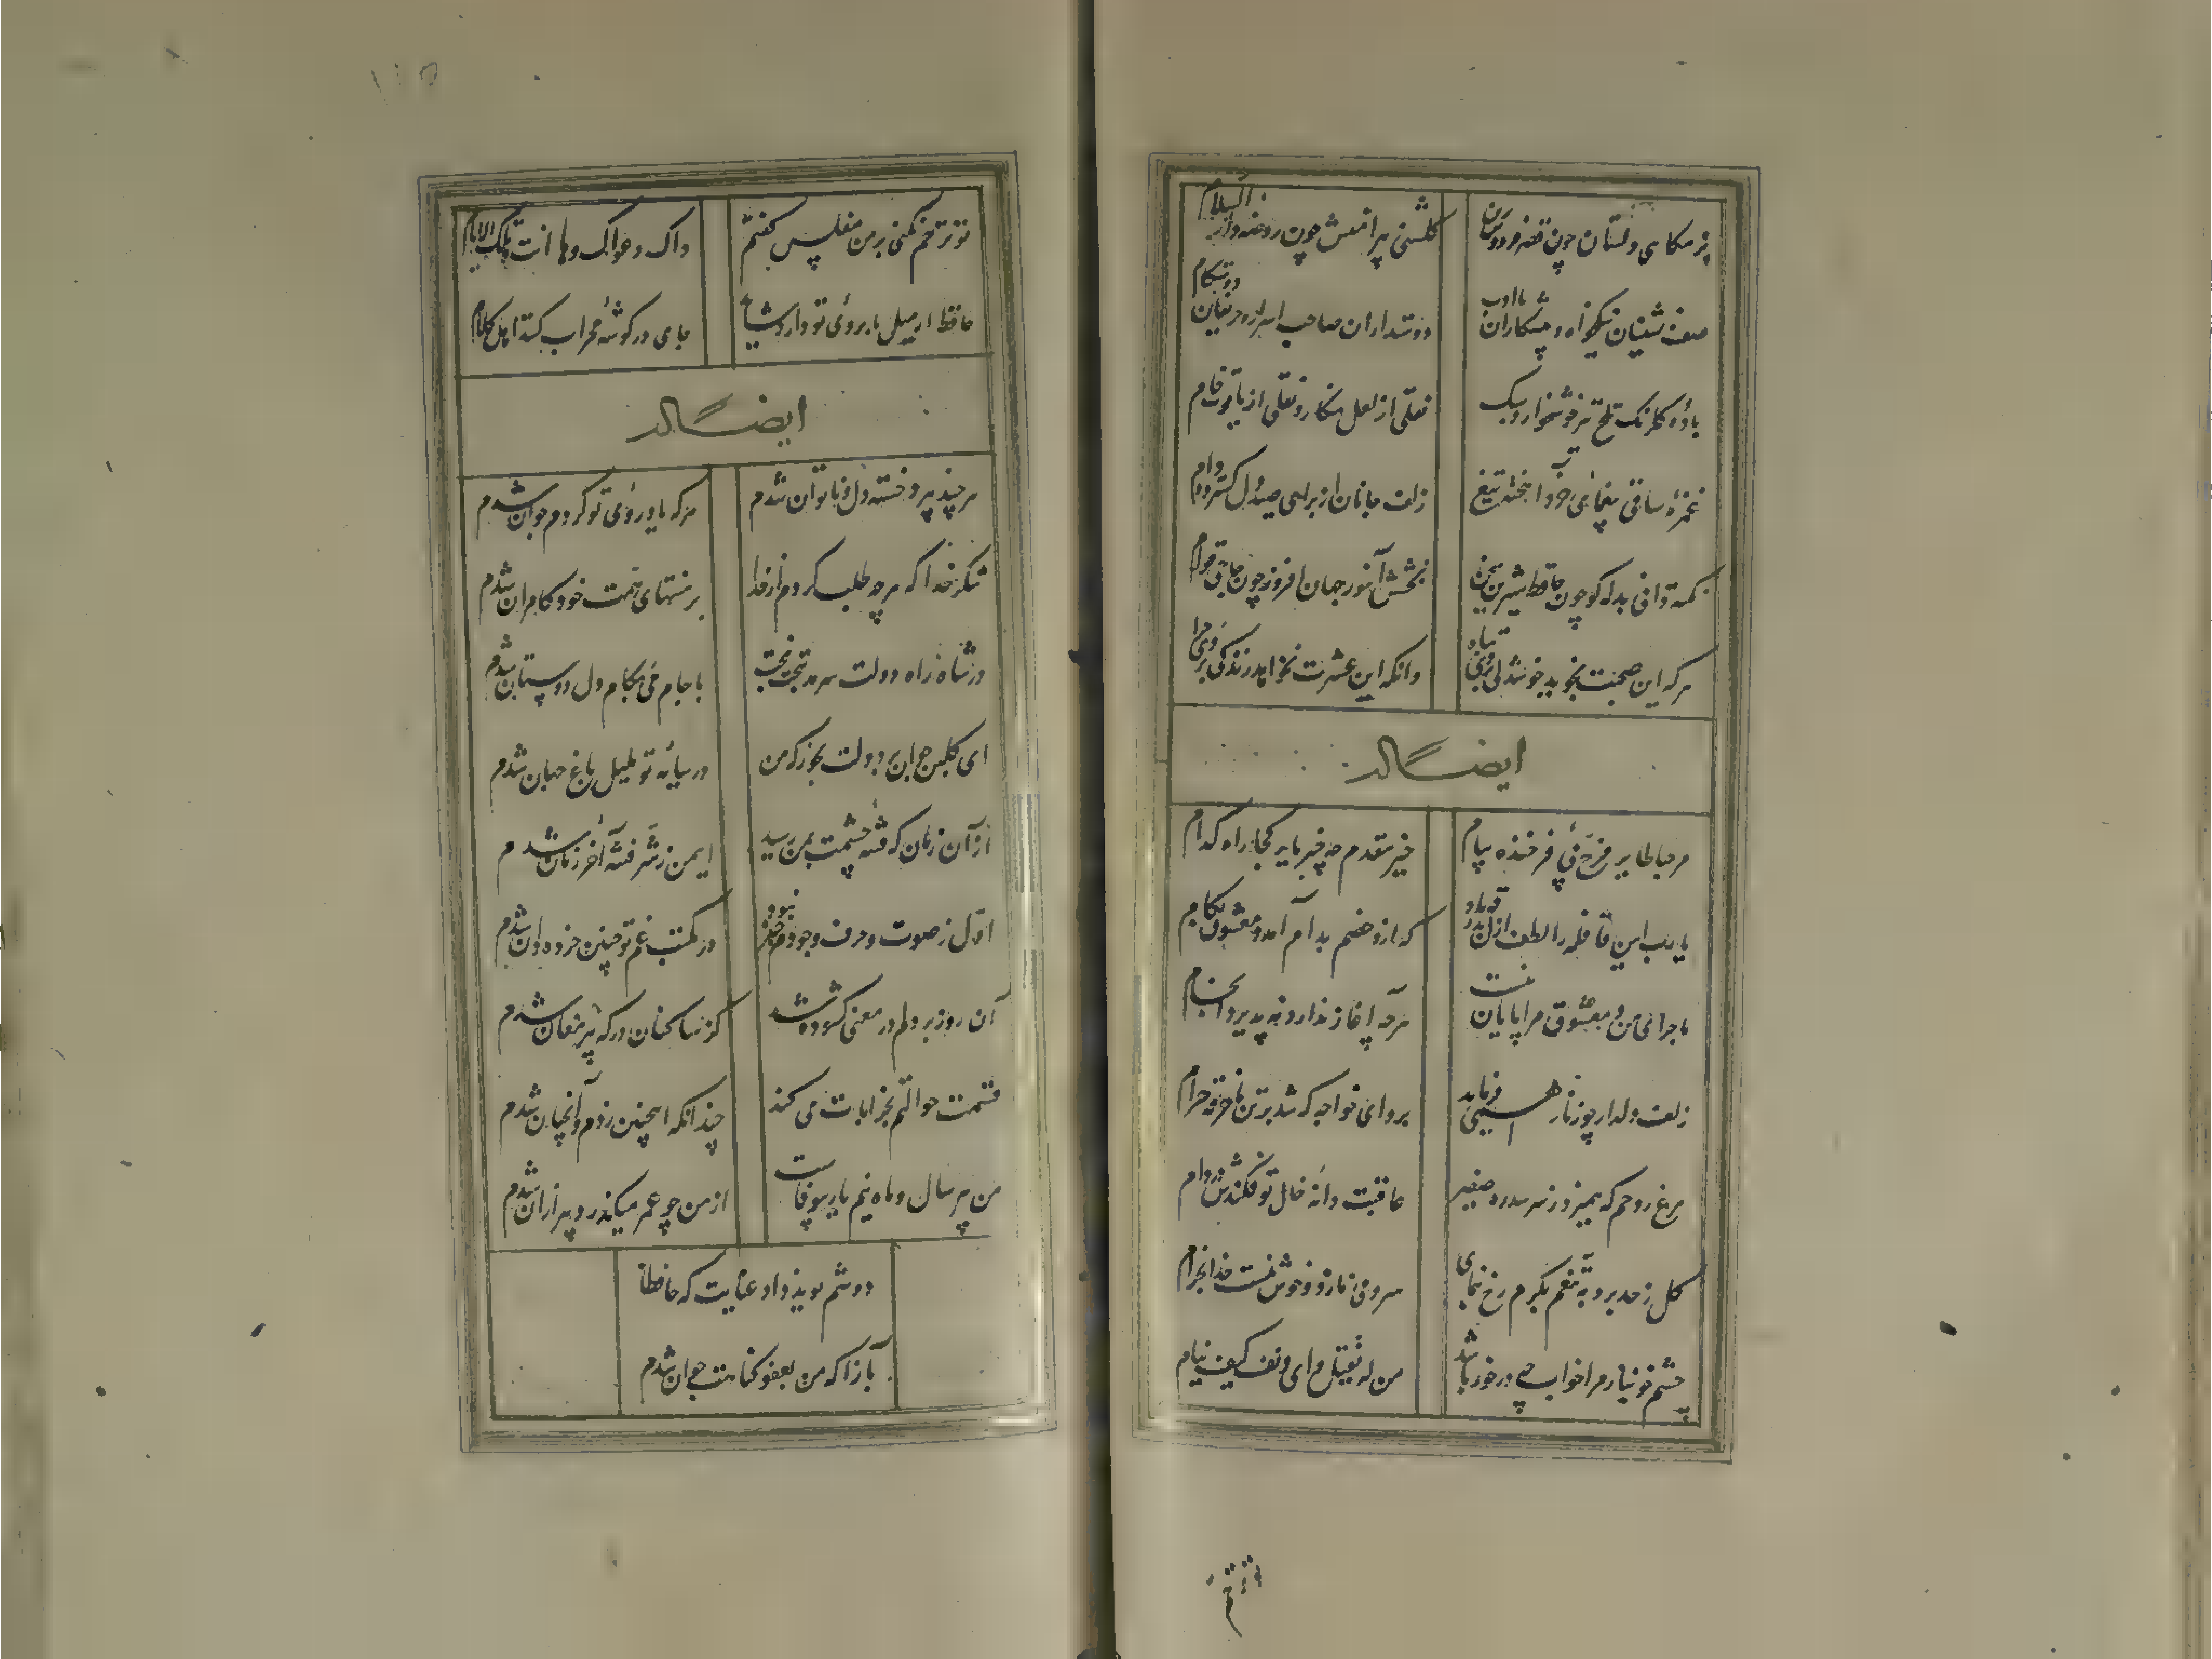 بزمکاهی دلستان چون قصر فردوس برین
کلشنی پیرامنش چون روضه دار السلام
صف نشینان نیکخواه و پیشکاران با ادب
دوستداران صاحب اسرار و حریفان دوستکام
باده کلرنک تلخ تیز خوشخوار و سبک
نقلی از لعل نکار و نقلی از یاقوت خام
غمزه ساقی بیغمای خرد آهخته تیغ
زلف جانان از برای صید دل کسترده دام
نکته دانی بذله کو چون حافظ شیرین سخن
بخشش آموز جهان افروز چون حاجی قوام
هرکه این صحبت نجوید خوشدلی بروی تباه
وانکه این عشرت نخواهد زندکی بروی حرام
ایضاً له
مرحبا طایر فرخ پی فرخنده پیام
خیر مقدم چه خبر یار کجا راه کدام
یا رب این قافله را لطف ازل بدرقه باد
که ازو خصم بدام آمد و معشوق بکام
ماجرای من و معشوق مرا پایان نیست
هرچه آغاز ندارد نه پذیرد انجام
زلف دلدار چو زنار همی فرماید
برو ای خواجه که شد بر تن ما خرقه حرام
مرغ روحم که همیزد ز سر سدره صفیر
عاقبت دانه خال تو فکندش در دام
کل ز حد برد تنعم بکرم رخ بنمای
سرو می نازد و خوش نیست خدا را بخرام
چشم خونبار مرا خواب چه درخور باشد
من له یقتل داء دنف کیف ینام
تو ترحم نکنی بر من مفلس کفتم
ذاک دعوای و ها انت و تلک الایام
حافظ ار میل بابروی تو دارد شاید
جای در کوشه محراب کنند اهل کلام
ایضاً له
هرچند پیر و خسته دل و ناتوان شدم
هرکه یاد روی تو کردم جوان شدم
شکر خدا که هرچه طلب کردم از خدا
بر منتهای همت خود کامران شدم
در شاه راه دولت سرمد بتخت بخت
با جام می بکام دل دوستان شدم
ای کلبن جوان بر دولت بخور که من
در سایه تو بلبل باغ جهان شدم
از آن زمان که فتنه چشمت بمن رسید
ایمن ز شر فتنه آخر زمان شدم
اول ز صوت و حرف وجودم خبر نبود
در مکتب غم تو چنین خرده دان شدم
آن روز بر دلم در معنی کشوده شد
کز ساکنان درکه پیر مغان شدم
قسمت حوالتم بخرابات می کند
چندانکه اینچنین زدم و آنچنان شدم
من پیر سال و ماه نیم یار بیوفاست
از من چو عمر میکذرد پیر از آن شدم
دوشم نوید داد عنایت که حافظا
بازآ که من بعفو کناهت ضمان شدم